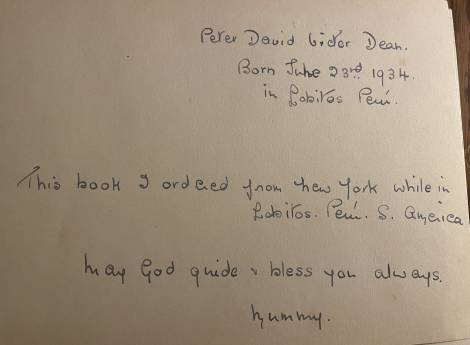 Peter David Victor Dean.
Born June 23rd 1934.
in Lobitos Perú.
This book I ordered from New York while in
Lobitos. Perú. S. America
May God guide & bless you always.
Mummy.